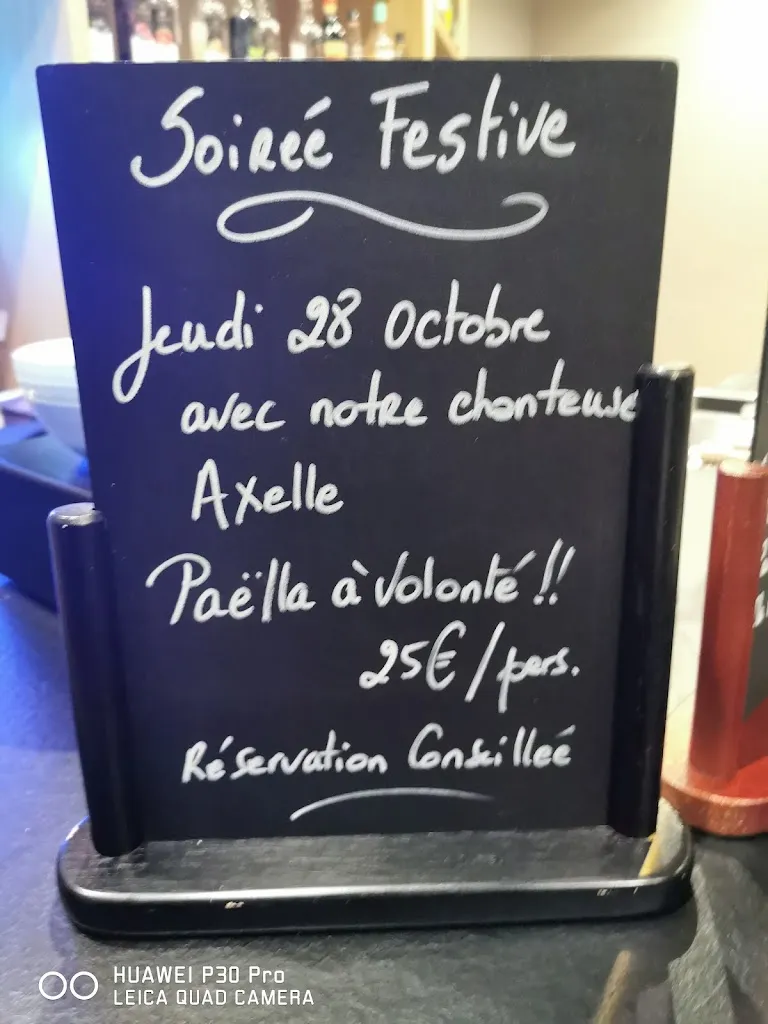 Soireé Festive
Jeudi 28 Octobre
avec notre chanteuse
Axelle
Paëlla à volonté !!
25€/pers.
Réservation Conseilleé
HUAWEI P30 Pro
LEICA QUAD CAMERA